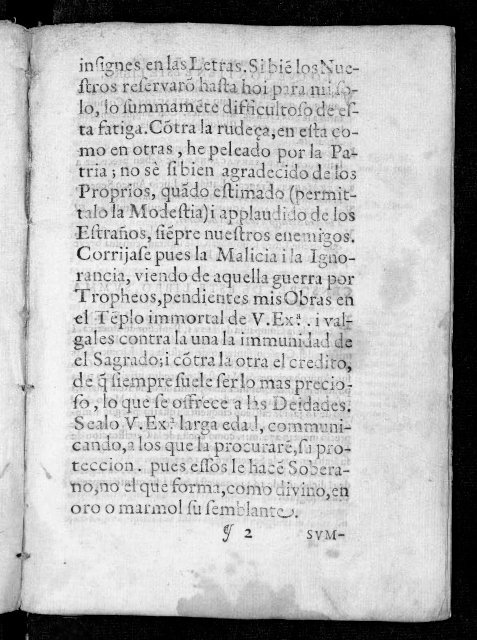 insignes en las Letras. Si biē los Nue-
stros reservarō hasta hoi para mi so-
lo, lo summamēte difficultoso de es-
ta fatiga. Cōtra la rudeça, en esta co-
mo en otras, he peleado por la Pa-
tria; no sè si bien agradecido de los
Proprios, quādo estimado (permit-
talo la Modestia) i applaudido de los
Estraños, siēpre nuestros enemigos.
Corrijase pues la Malicia i la Igno-
rancia, viendo de aquella guerra por
Tropheos, pendientes mis Obras en
el Tēplo immortal de V. Ex.ª. i val-
gales contra la una la immunidad de
el Sagrado; i cōtra la otra el credito,
de q̄ siempre suele ser lo mas precio-
so, lo que se offrece a las Deidades.
Sealo V. Ex.ª larga edad, communi-
cando, a los que la procuraré, su pro-
teccion. pues essos le hacē Sobera-
no, no el que forma, como divino, en
oro o marmol su semblante.
¶ 2 SVM-